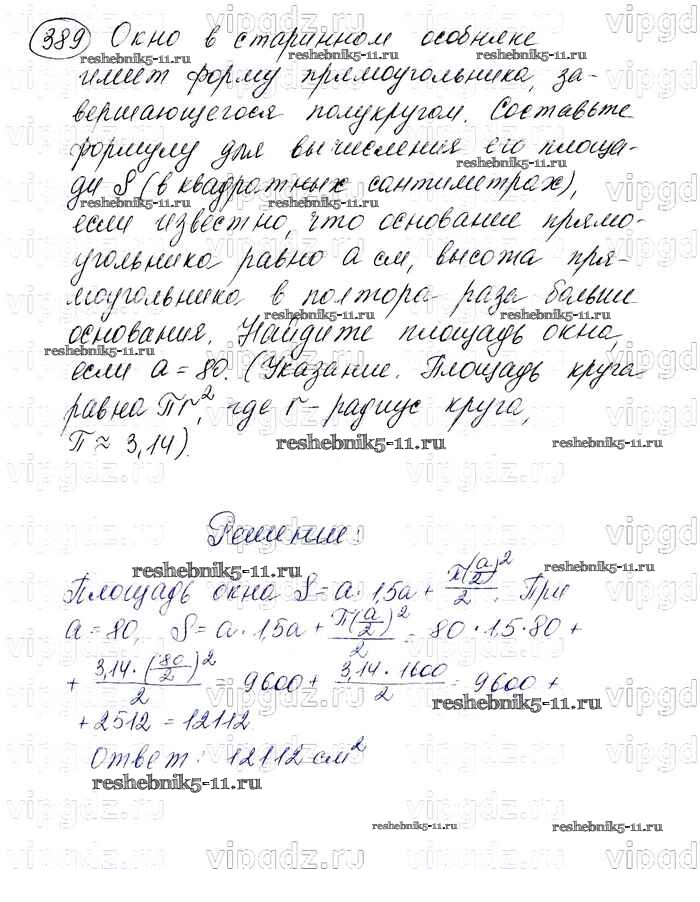 389 Окно в старинном особняке
имеет форму прямоугольника, за-
вершающегося полукругом. Составьте
формулу для вычисления его площа-
ди S (в квадратных сантиметрах),
если известно, что основание прямо-
угольника равно a см, высота пря-
моугольника в полтора раза больше
основания. Найдите площадь окна,
если a = 80. (Указание. Площадь круга
равна πr², где r – радиус круга,
π ≈ 3,14).
Решение:
Площадь окна S = a · 1,5a + π(a/2)²/2. При
a = 80, S = a · 1,5a + π(a/2)²/2 = 80 · 1,5 · 80 +
+ 3,14 · (80/2)²/2 = 9600 + 3,14 · 1600/2 = 9600 +
+ 2512 = 12112.
Ответ: 12112 см²
reshebnik5-11.ru
vipgdz.ru